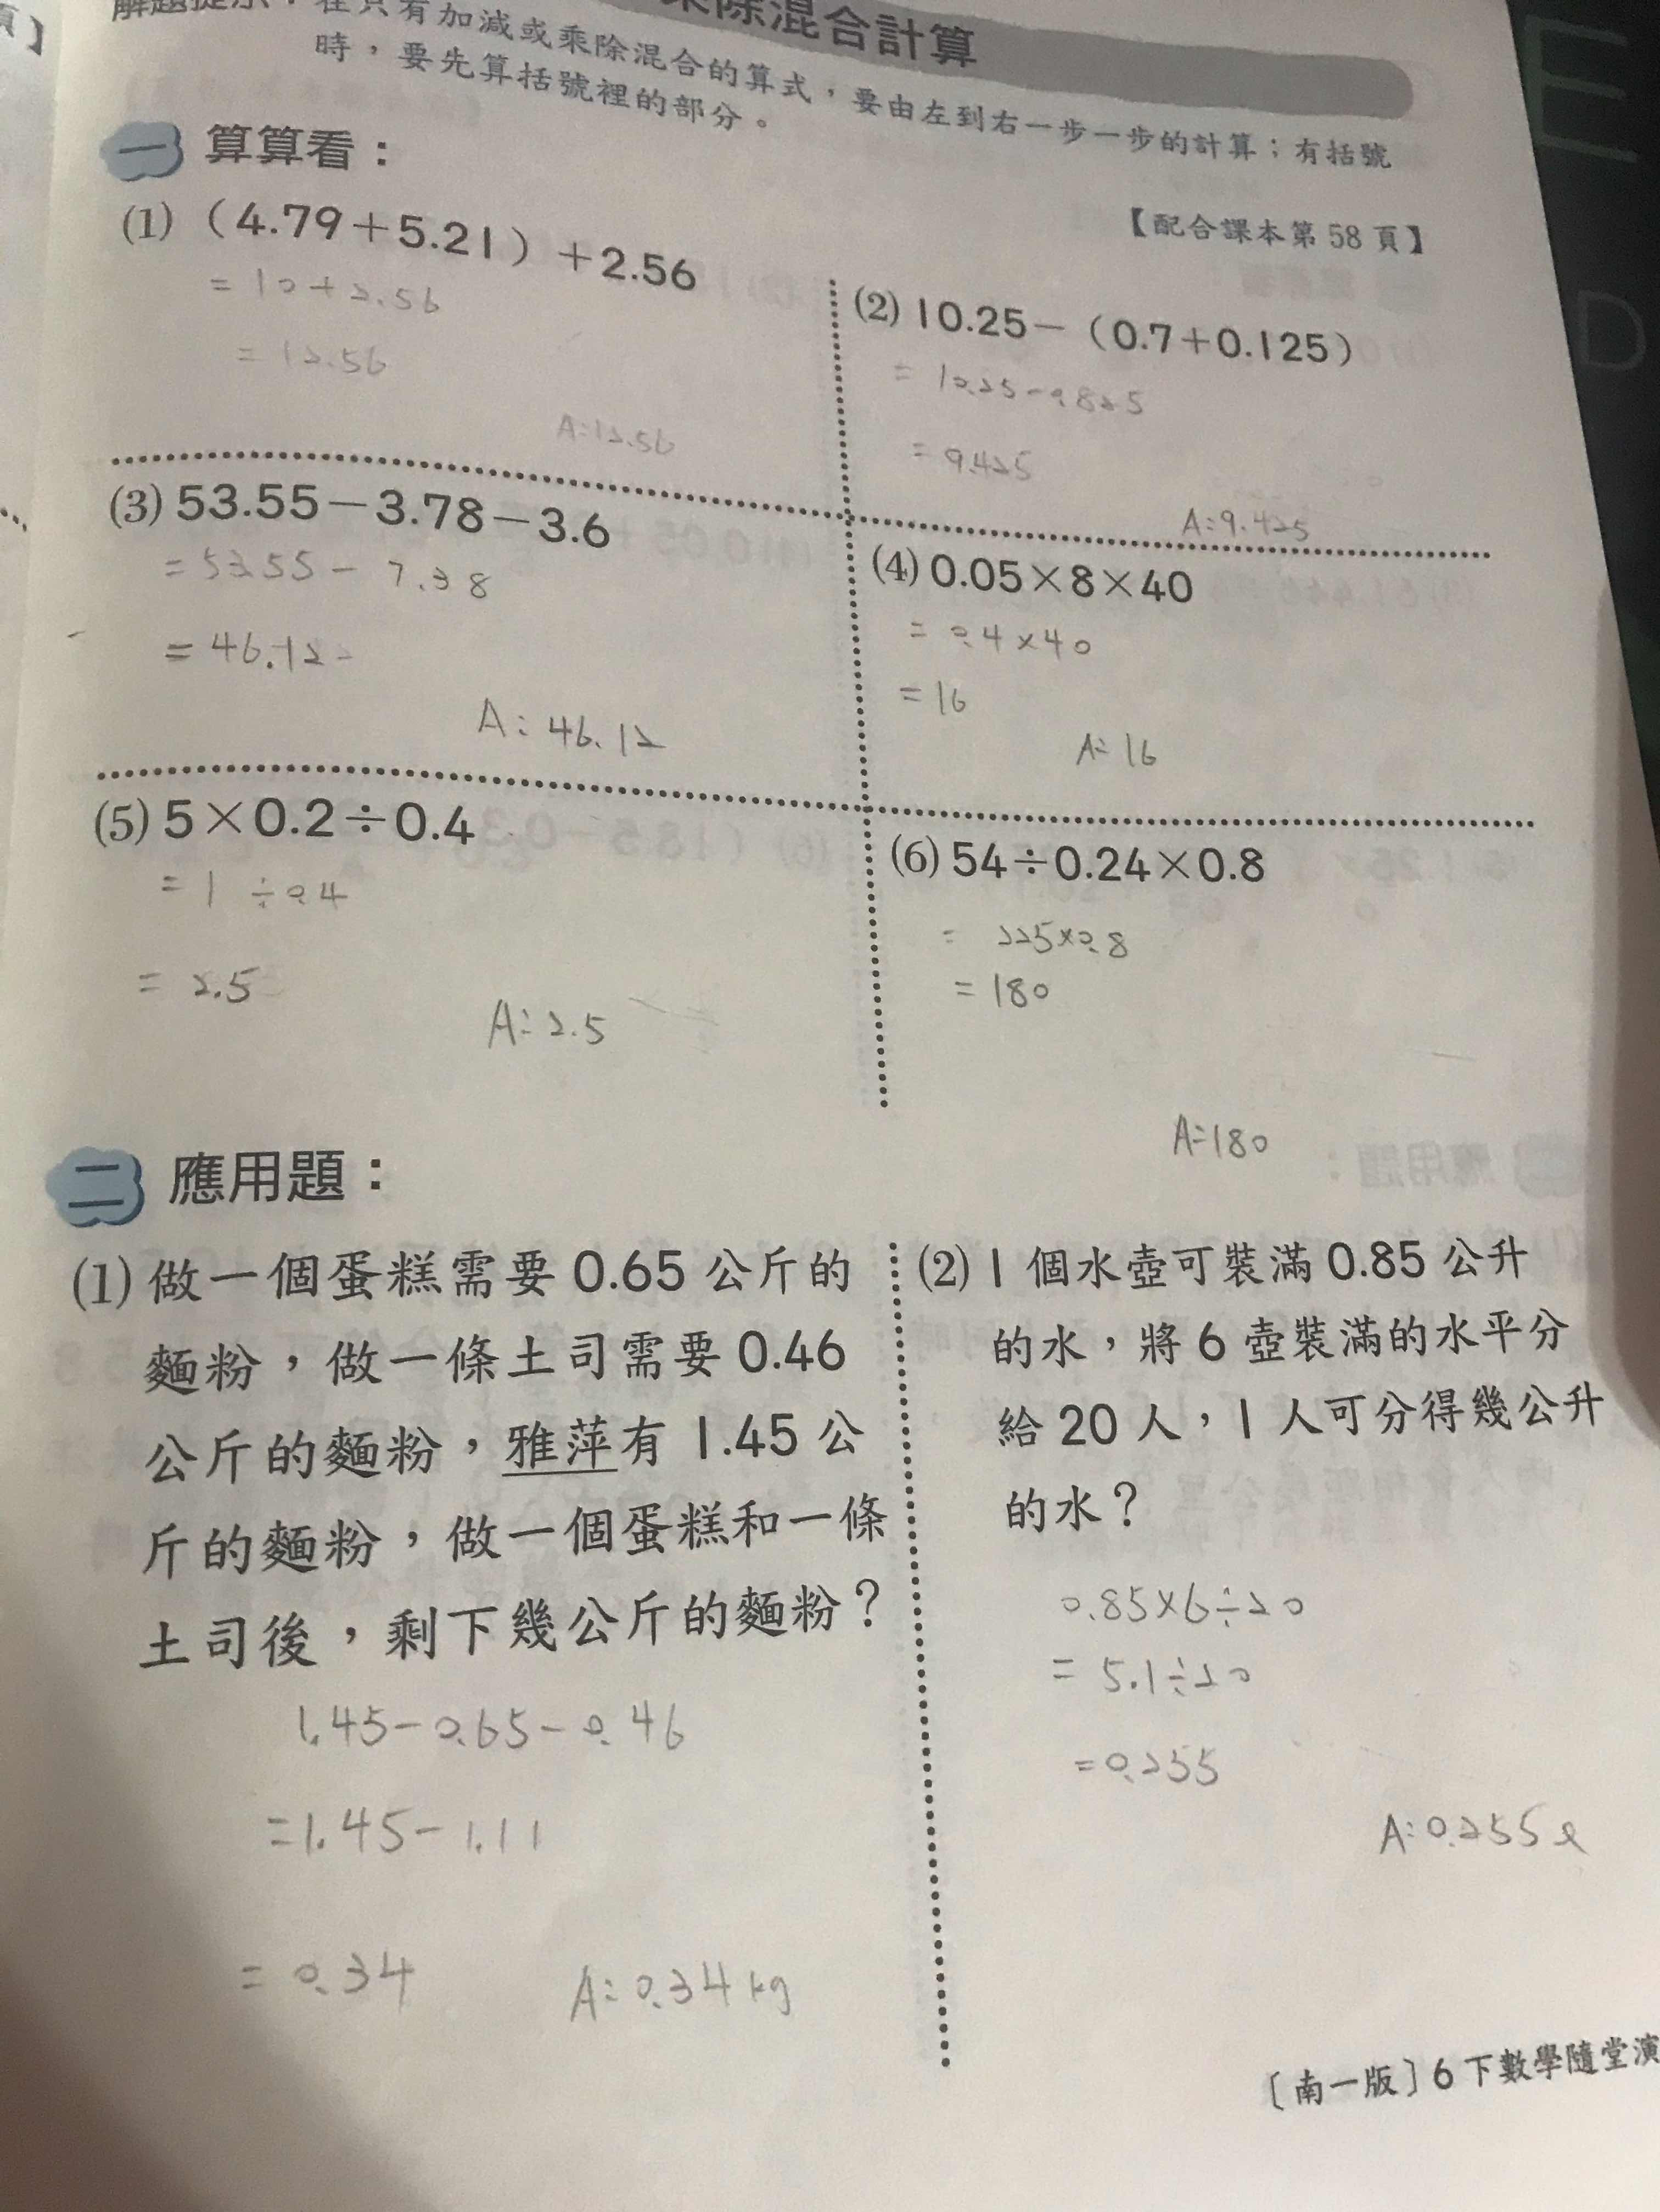 頁】
乘除混合計算
解題提示：在只有加減或乘除混合的算式，要由左到右一步一步的計算；有括號
時，要先算括號裡的部分。
一 算算看：
【配合課本第 58 頁】
(1) （4.79＋5.21）＋2.56
= 10 + 2.56
= 12.56
A:12.56
(2) 10.25－（0.7＋0.125）
= 10.25-0.825
= 9.425
A:9.425
(3) 53.55－3.78－3.6
= 53.55 - 7.38
= 46.12
A: 46.12
(4) 0.05×8×40
= 0.4×40
= 16
A: 16
(5) 5×0.2÷0.4
= 1 ÷0.4
= 2.5
A: 2.5
(6) 54÷0.24×0.8
= 225×0.8
= 180
A: 180
二 應用題：
(1) 做一個蛋糕需要 0.65 公斤的
麵粉，做一條土司需要 0.46
公斤的麵粉，雅萍有 1.45 公
斤的麵粉，做一個蛋糕和一條
土司後，剩下幾公斤的麵粉？
1.45-0.65-0.46
=1.45-1.11
= 0.34
A: 0.34 kg
(2) 1 個水壺可裝滿 0.85 公升
的水，將 6 壺裝滿的水平分
給 20 人，1 人可分得幾公升
的水？
0.85×6÷20
= 5.1÷20
=0.255
A:0.255ℓ
〔南一版〕6 下數學隨堂演